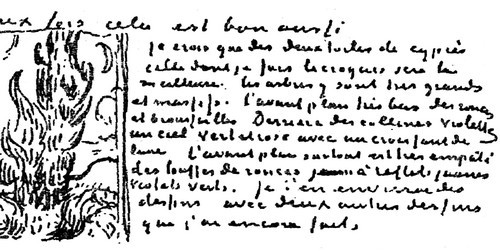 fois cela est bon aussi
je crois que des deux toiles de cyprès
celle dont je fais le croquis sera la
meilleure. les arbres y sont très grands
et massifs. l'avant plan très bas des ronces
et broussailles Derrière des collines violettes
un ciel vert et rose avec un croissant de
lune L'avant plan surtout est très empâté
des touffes de ronces à reflets jaunes
violets verts. Je t'en enverrai des
dessins avec deux autres dessins
que j'ai encore faits,